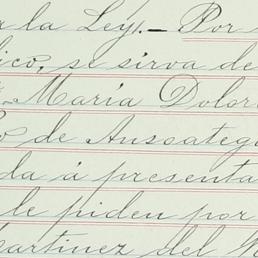 a la Ley.— Por
ico, se sirva de
María Dolor
o de Ansoategu
da á presenta
le piden por
artinez del